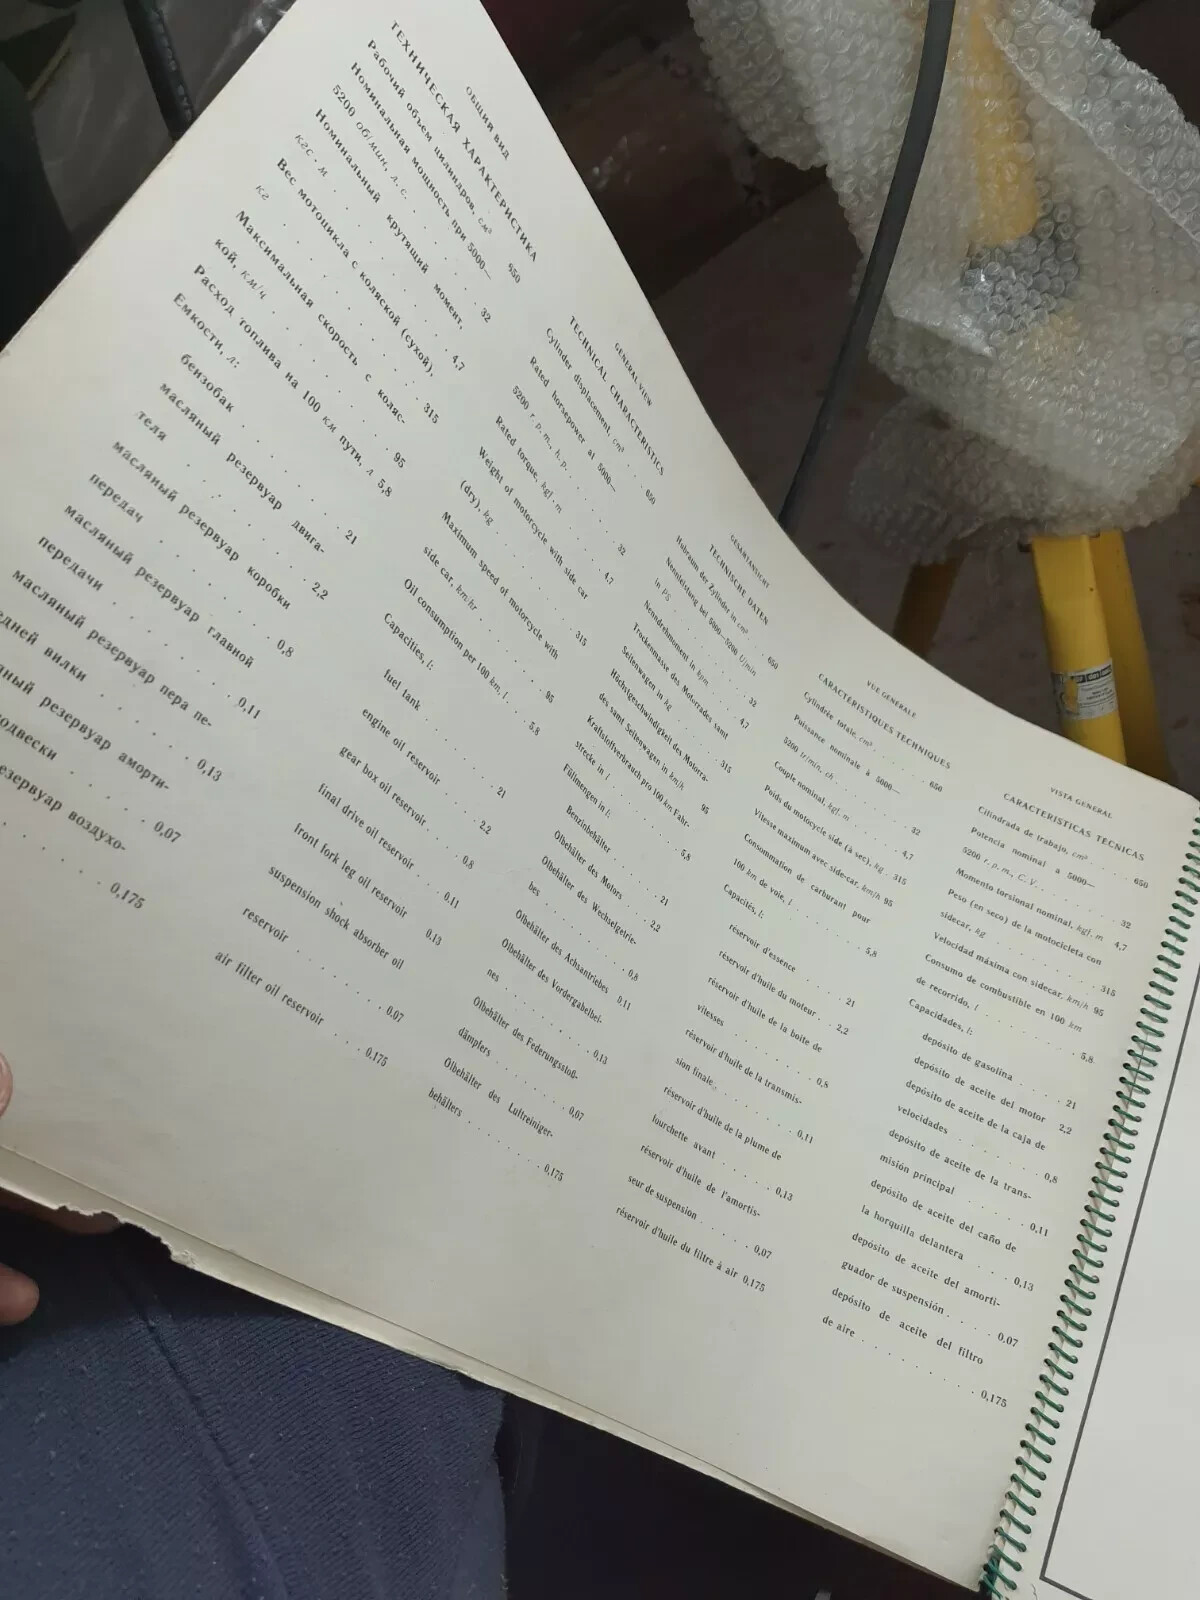 ОБЩИЙ ВИД
ТЕХНИЧЕСКАЯ ХАРАКТЕРИСТИКА
Рабочий объем цилиндров, см³ 650
Номинальная мощность при 5000—
5200 об/мин, л. с. . . . . . . 32
Номинальный крутящий момент,
кгс·м . . . . . . . . . 4,7
Вес мотоцикла с коляской (сухой),
кг . . . . . . . . . . 315
Максимальная скорость с коляс-
кой, км/ч . . . . . . . . 95
Расход топлива на 100 км пути, л 5,8
Емкости, л:
бензобак . . . . . . . 21
масляный резервуар двига-
теля . . . . . . . . 2,2
масляный резервуар коробки
передач . . . . . . . 0,8
масляный резервуар главной
передачи . . . . . . . 0,11
масляный резервуар пера пе-
едней вилки . . . . . . 0,13
яный резервуар аморти-
одвески . . . . . . 0,07
езервуар воздухо-
. . . . . . . 0,175
GENERAL VIEW
TECHNICAL CHARACTERISTICS
Cylinder displacement, cm³ . . . 650
Rated horsepower at 5000—
5200 r. p. m., h. p. . . . . . . 32
Rated torque, kgf. m . . . . . . 4,7
Weight of motorcycle with side car
(dry), kg . . . . . . . . . 315
Maximum speed of motorcycle with
side car, km/hr . . . . . . . 95
Oil consumption per 100 km, l . . 5,8
Capacities, l:
fuel tank . . . . . . . 21
engine oil reservoir . . . . 2,2
gear box oil reservoir . . . . 0,8
final drive oil reservoir . . . 0,11
front fork leg oil reservoir 0,13
suspension shock absorber oil
reservoir . . . . . . . . 0,07
air filter oil reservoir . . . 0,175
GESAMTANSICHT
TECHNISCHE DATEN
Hubraum der Zylinder in cm³ . 650
Nennleistung bei 5000—5200 U/min
in PS . . . . . . . . . 32
Nenndrehmoment in kpm . . . . 4,7
Trockenmasse des Motorrades samt
Seitenwagen in kg . . . . . 315
Höchstgeschwindigkeit des Motorra-
des samt Seitenwagen in km/h 95
Kraftstoffverbrauch pro 100 km Fahr-
strecke in l . . . . . . . 5,8
Füllmengen in l:
Benzinbehälter . . . . . 21
Ölbehälter des Motors . . . 2,2
Ölbehälter des Wechselgetrie-
bes . . . . . . . . 0,8
Ölbehälter des Achsantriebes 0,11
Ölbehälter des Vordergabelbei-
nes . . . . . . . . 0,13
Ölbehälter des Federungsstoß-
dämplers . . . . . . . 0,07
Ölbehälter des Luftreiniger-
behälters . . . . . . . 0,175
VUE GENERALE
CARACTERISTIQUES TECHNIQUES
Cylindrée totale, cm³ . . . . . 650
Puissance nominale à 5000—
5200 tr/min, ch . . . . . . 32
Couple nominal, kgf. m . . . . 4,7
Poids du motocycle side (à sec), kg . 315
Vitesse maximum avec side-car, km/h 95
Consommation de carburant pour
100 km de voie, l . . . . . . 5,8
Capacités, l:
réservoir d'essence . . . . 21
réservoir d'huile du moteur . . 2,2
réservoir d'huile de la boite de
vitesses . . . . . . . 0,8
réservoir d'huile de la transmis-
sion finale . . . . . . . 0,11
réservoir d'huile de la plume de
fourchette avant . . . . . 0,13
réservoir d'huile de l'amortis-
seur de suspension . . . . 0,07
réservoir d'huile du filtre à air 0,175
VISTA GENERAL
CARACTERISTICAS TECNICAS
Cilindrada de trabajo, cm³ . . . 650
Potencia nominal a 5000—
5200 r. p. m., C. V. . . . . . . 32
Momento torsional nominal, kgf. m 4,7
Peso (en seco) de la motocicleta con
sidecar, kg . . . . . . . 315
Velocidad máxima con sidecar, km/h 95
Consumo de combustible en 100 km
de recorrido, l . . . . . . 5,8
Capacidades, l:
depósito de gasolina . . . . 21
depósito de aceite del motor 2,2
depósito de aceite de la caja de
velocidades . . . . . . 0,8
depósito de aceite de la trans-
misión principal . . . . . 0,11
depósito de aceite del caño de
la horquilla delantera . . . 0,13
depósito de aceite del amorti-
guador de suspensión . . . . 0,07
depósito de aceite del filtro
de aire . . . . . . . . 0,175